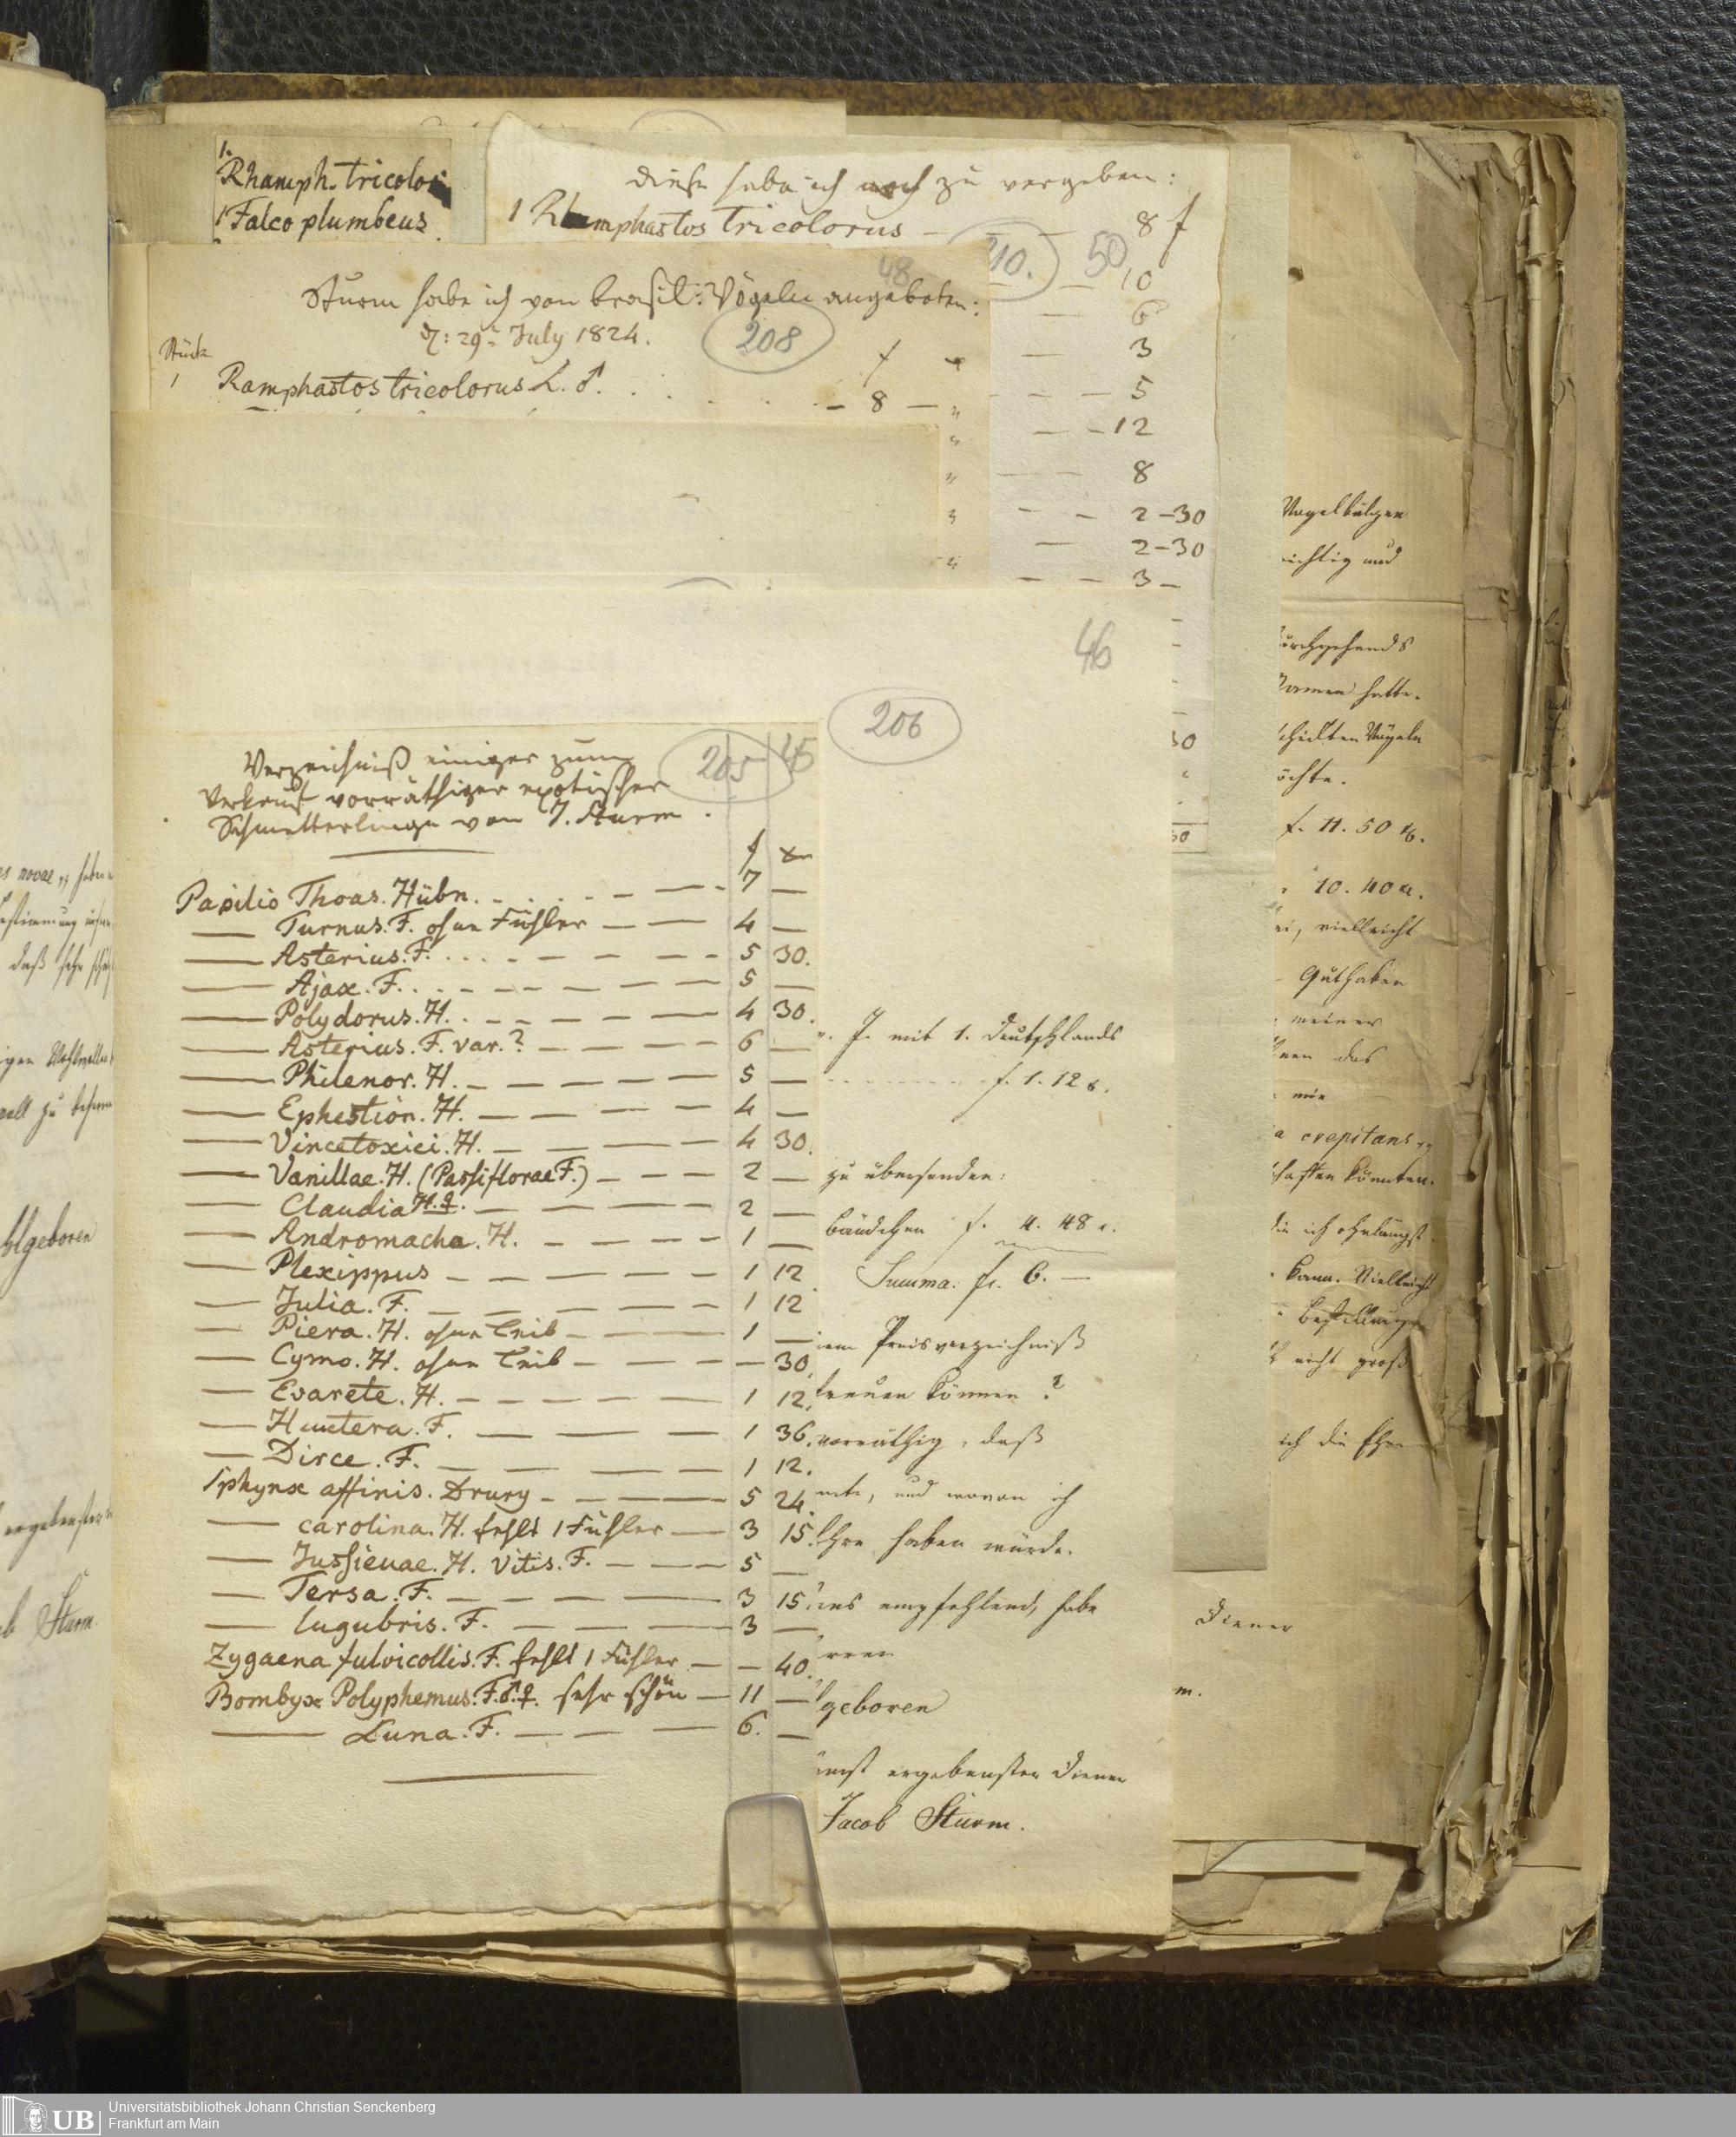 1. Rhamph. tricolor
1 Falco plumbeus
Diese habe ich noch zu vergeben:
1 Rhamphastos tricolorus — — 8 f
210. 50
— 10
— 6
— 3
— — 5
— — 12
— — 8
— — 2 — 30
— 2 — 30
— — 3 —
48
Sturm habe ich von brasil: Vögeln angeboten:
d: 29t July 1824.
208
Stück f
1 Ramphastos tricolorus L. ♂. . . . . — 8 — "
46
206
205 45
Verzeichniß einiger zum
Verkauf vorräthiger exotischer
Schmetterlinge von J. Sturm.
f xr
Papilio Thoas. Hübn. . . . . — — 7 —
— Turnus. F. ohne Fühler — — 4 —
— Asterius. F. . . . — — — — 5 30.
— Ajax. F. . . — — — — — 5 —
— Polydorus. H. . . — — — — 4 30.
— Asterius. F. var.? — — — — 6 —
— Philenor. H. — — — — — 5 —
— Ephestion. H. — — — — 4 —
— Vincetoxici. H. — — — — 4 30.
— Vanillae. H. (Passiflorae F.) — — — 2 —
— Claudia H. ♀. — — — — — 2 —
— Andromacha. H. — — — — 1 —
— Plexippus — — — — — 1 12
— Julia. F. — — — — — 1 12
— Piera. H. ohne Leib — — — — 1 —
— Cymo. H. ohne Leib — — — — — 30
— Evarete. H. — — — — — 1 12.
— Huntera. F. — — — — 1 36.
— Dirce. F. — — — — — 1 12.
Sphynx affinis. Drury — — — — 5 24.
— carolina. H. fehlt 1 Fühler — 3 15.
— Jussieuae. H. Vitis. F. — — — 5 —
— Tersa. F. — — — — — 3 15
— lugubris. F. — — — — 3 —
Zygaena fulvicollis. F. fehlt 1 Fühler — — 40.
Bombyx Polyphemus. F. ♂. ♀. sehr schön — 11 —
— Luna. F. — — — 6. —
J. mit 1. Deutschlands
f. 1. 12 x.
zu übersenden:
bändchen f. 4. 48 x.
Summa: fl. 6. —
Preisverzeichniß
können?
vorräthig, daß
und wovon ich
haben würde.
empfehlend, habe
geboren
ergebenster Diener
Jacob Sturm.
Vogelbälgen
ichtig und
urchgehends
Namen hatte.
chickten Vögeln
öchte.
f. 11. 50 x.
10. 40 x.
ei, vielleicht
Guthaben
meiner
nen das
mir
a crepitans
haften könnten.
die ich ohnlängst
kann. Vielleicht
Bestellungen
nicht groß
ich die Ehre
Diener
m.
es novae
Bestimmung
daß sehr
zu
hlgeboren
ergebenster
b Sturm.
UB Universitätsbibliothek Johann Christian Senckenberg
Frankfurt am Main